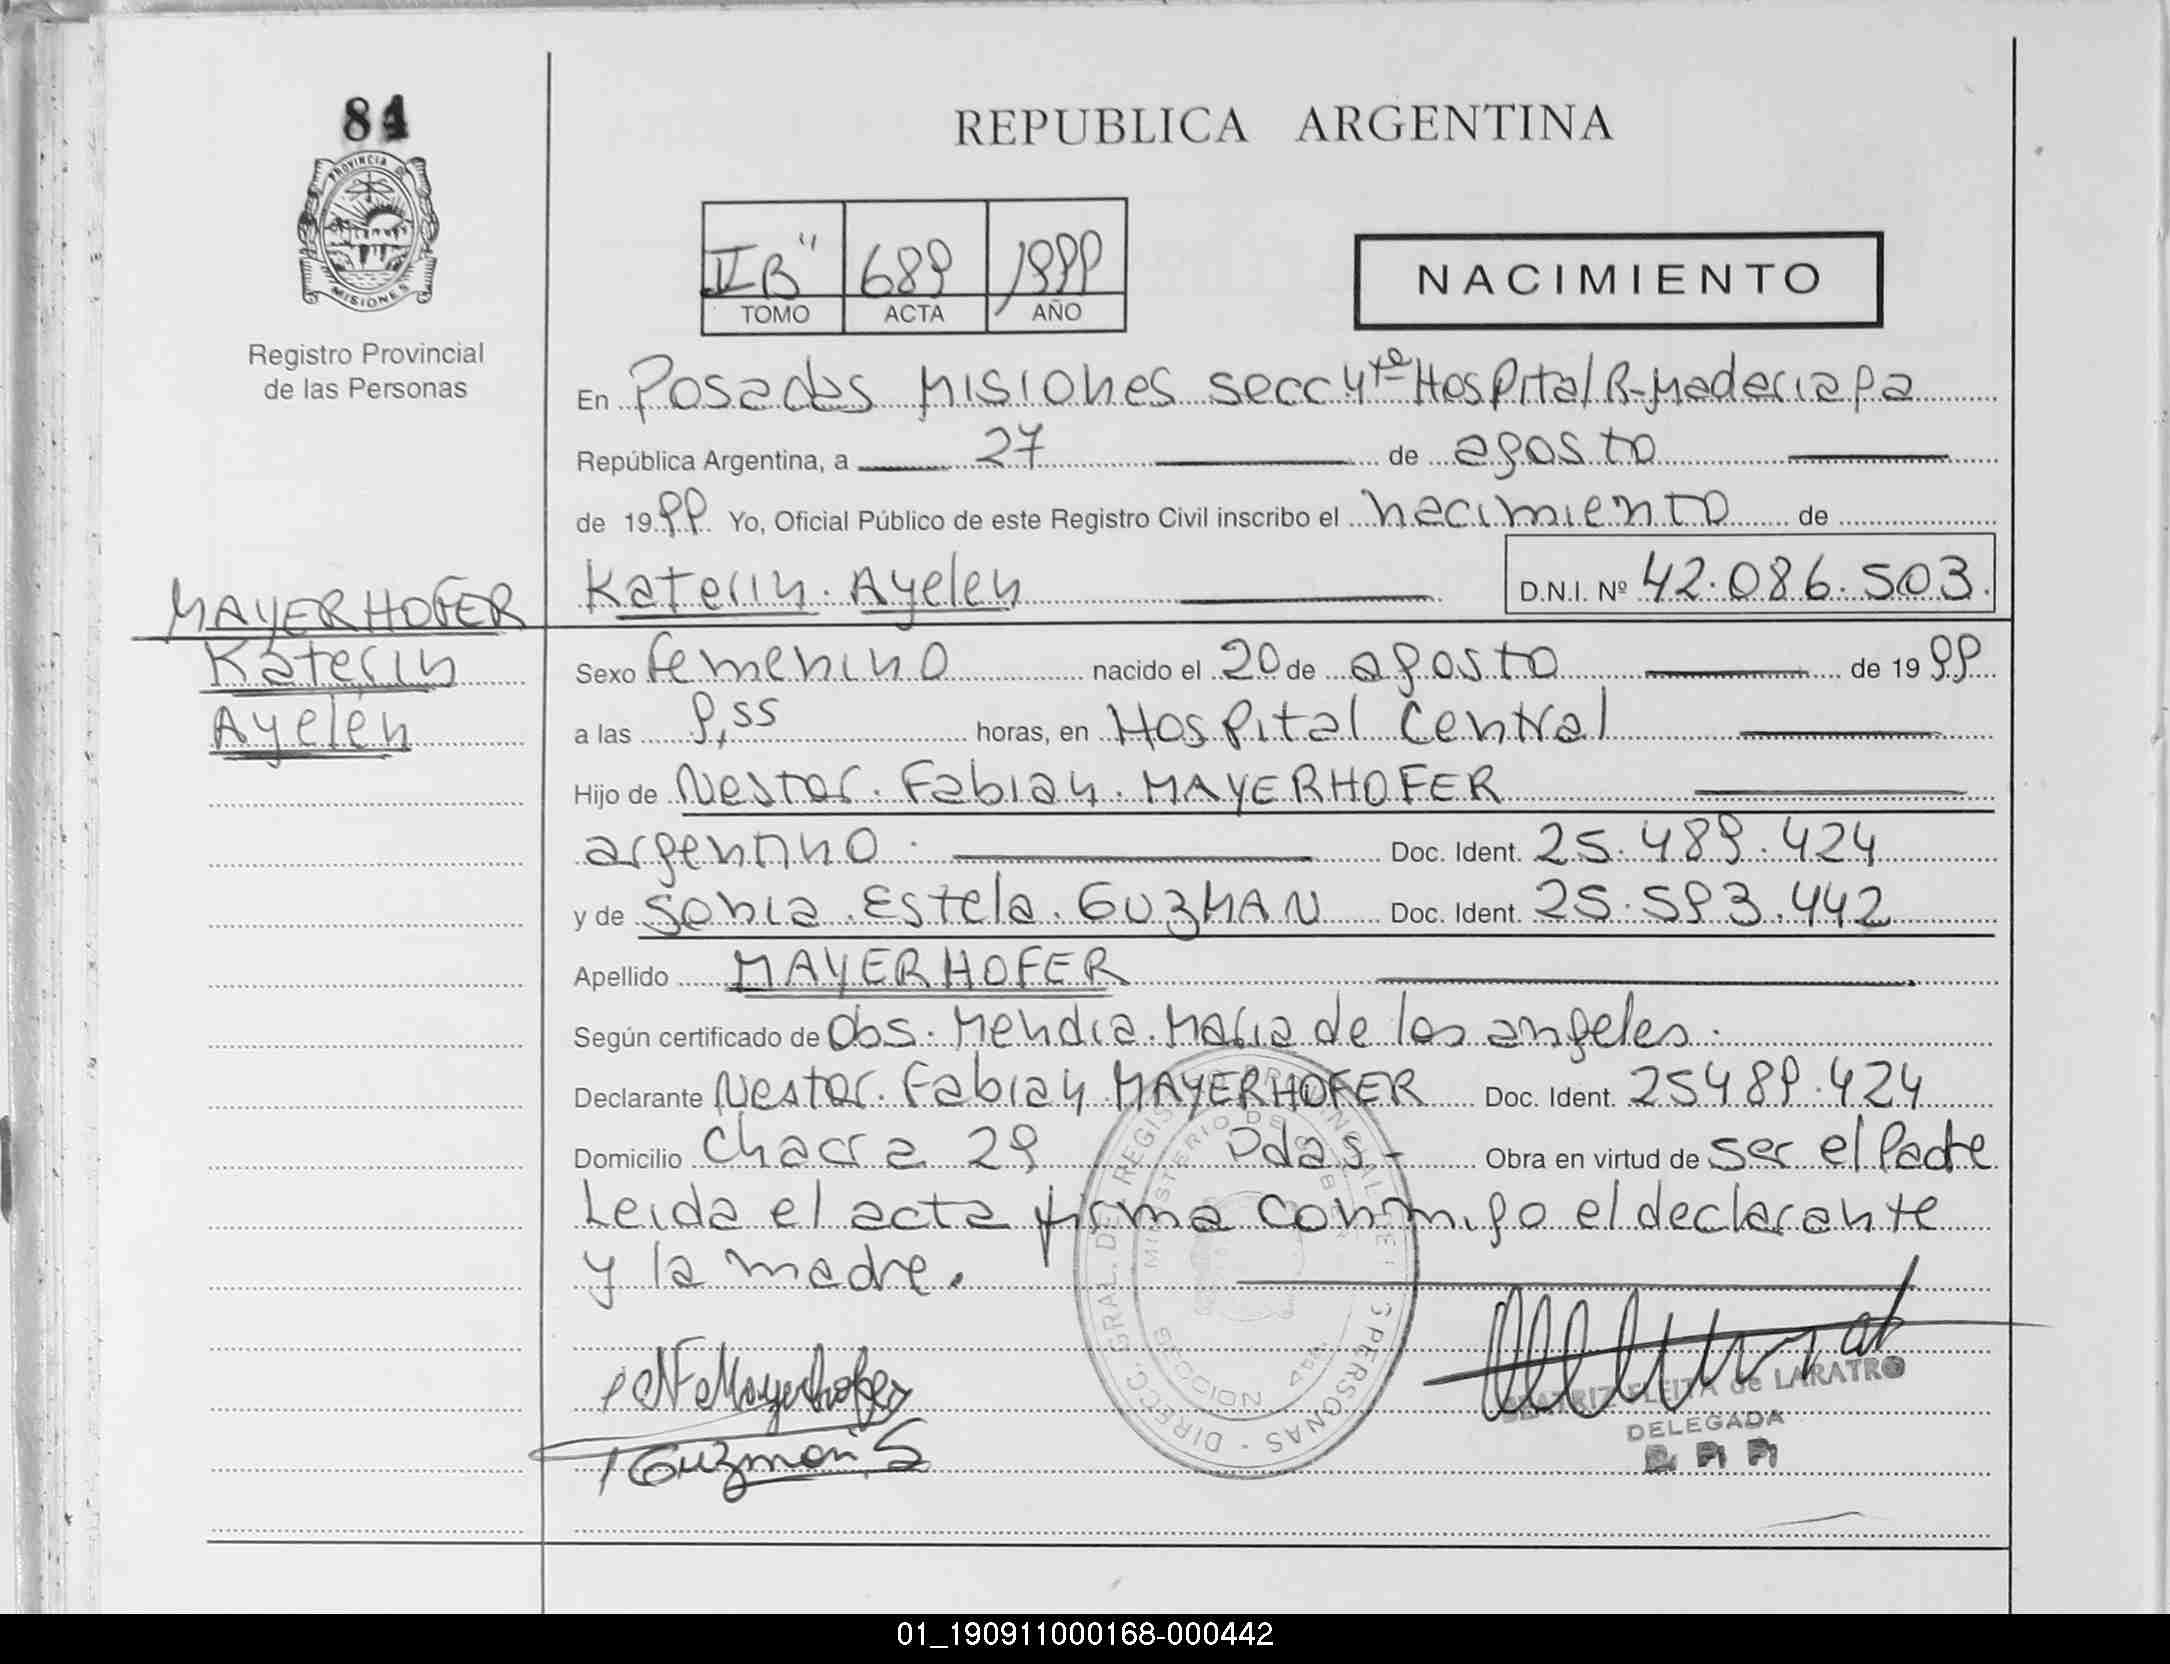 84
PROVINCIA DE
MISIONES
Registro Provincial
de las Personas
REPUBLICA ARGENTINA
II B" 689 1999
TOMO ACTA AÑO
NACIMIENTO
En Posadas Misiones secc 4ta Hospital R. Madariaga
República Argentina, a 27 de agosto
de 1999 Yo, Oficial Público de este Registro Civil inscribo el nacimiento de
Katerin. Ayelen D.N.I. Nº 42.086.503.
MAYERHOFER
Katerin
Ayelén
Sexo femenino nacido el 20 de agosto de 1999
a las 9,55 horas, en Hospital Central
Hijo de Nestor. Fabian. MAYERHOFER
argentino. Doc. Ident. 25.489.424
y de Sonia. Estela. GUZMAN Doc. Ident. 25.593.442
Apellido MAYERHOFER
Según certificado de Obs. Mendia. Maria de los angeles.
Declarante Nestor. Fabian MAYERHOFER Doc. Ident. 25489.424
Domicilio Chacra 29 Pdas- Obra en virtud de ser el Padre
Leida el acta firma conmigo el declarante
y la madre.
Mayerhofer
Guzman S
BEATRIZ de LARATRO
DELEGADA
R. P. P.
01_190911000168-000442